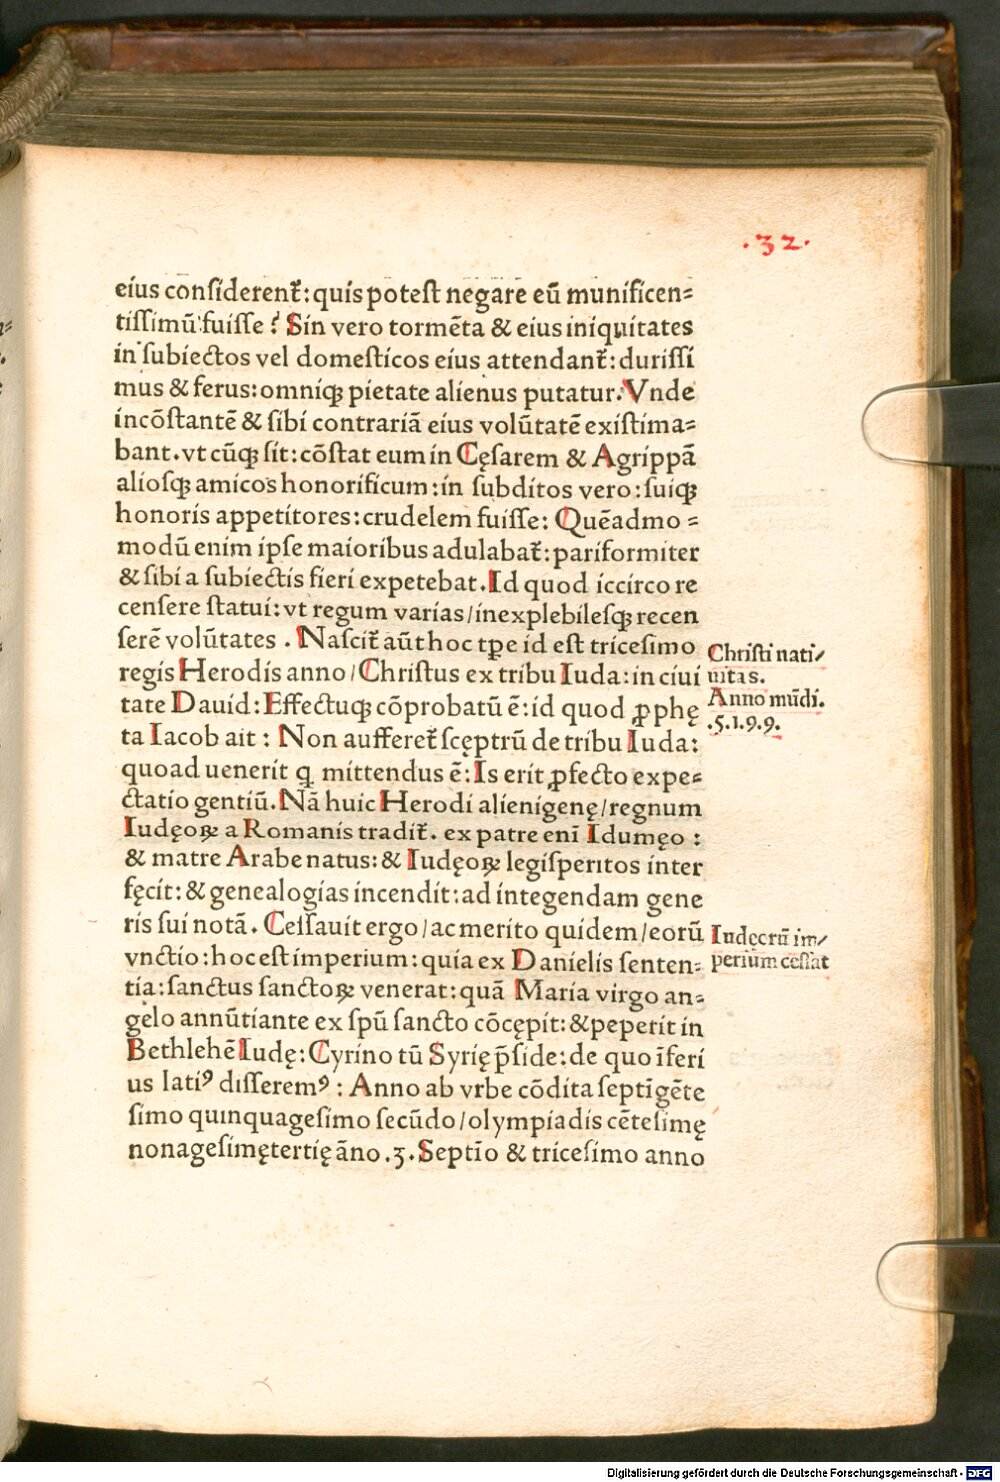 .32.
eius conſiderent᷑: quis poteſt negare eū munificen⸗
tiſſimū fuiſſe? Sin vero tormēta & eius iniquitates
in ſubiectos vel domeſticos eius attendant᷑: duriſſi
mus & ferus: omniqꝫ pietate alienus putatur. Vnde
incōſtantē & ſibi contrariā eius volūtatē exiſtima⸗
bant. vt cūqꝫ ſit: cōſtat eum in Cęſarem & Agrippā
alioſqꝫ amicos honorificum: in ſubditos vero: ſuiqꝫ
honoris appetitores: crudelem fuiſſe: Quēadmo⸗
modū enim ipſe maioribus adulabat᷑: pariformiter
& ſibi a ſubiectis fieri expetebat. Id quod iccirco re
cenſere ſtatui: vt regum varias/inexplebileſqꝫ recen
ſerē volūtates. Naſcit᷑ aūt hoc tꝑe id eſt triceſimo
regis Herodis anno/Chriſtus ex tribu Iuda: in ciui
tate Dauid: Effectuqꝫ cōprobatū ē: id quod ꝓphę
ta Iacob ait: Non aufferet᷑ ſcęptrū de tribu Iuda:
quoad uenerit q mittendus ē: Is erit ꝓfecto expe⸗
ctatio gentiū. Nā huic Herodi alienigenę/regnum
Iudęoꝝ a Romanis tradit᷑. ex patre enī Idumęo:
& matre Arabe natus: & Iudęoꝝ legiſperitos inter
fęcit: & genealogias incendit: ad integendam gene
ris ſui notā. Ceſſauit ergo/ac merito quidem/eorū
vnctio: hoc eſt imperium: quia ex Danielis ſenten⸗
tia: ſanctus ſanctoꝝ venerat: quā Maria virgo an⸗
gelo annūtiante ex ſpū ſancto cōcępit: & peperit in
Bethlehē Iudę: Cyrino tū Syrię p̄ſide: de quo īferi
us latiꝰ diſſeremꝰ: Anno ab vrbe cōdita ſeptīgēte
ſimo quinquageſimo ſecūdo/olympiadis cēteſimę
nonageſimętertię āno .3. Septīo & triceſimo anno
Chriſti nati/
uitas.
Anno mūdi.
.5.1.9.9.
Iudęcrū im/
perium ceſſat
Digitalisierung gefördert durch die Deutsche Forschungsgemeinschaft - DFG